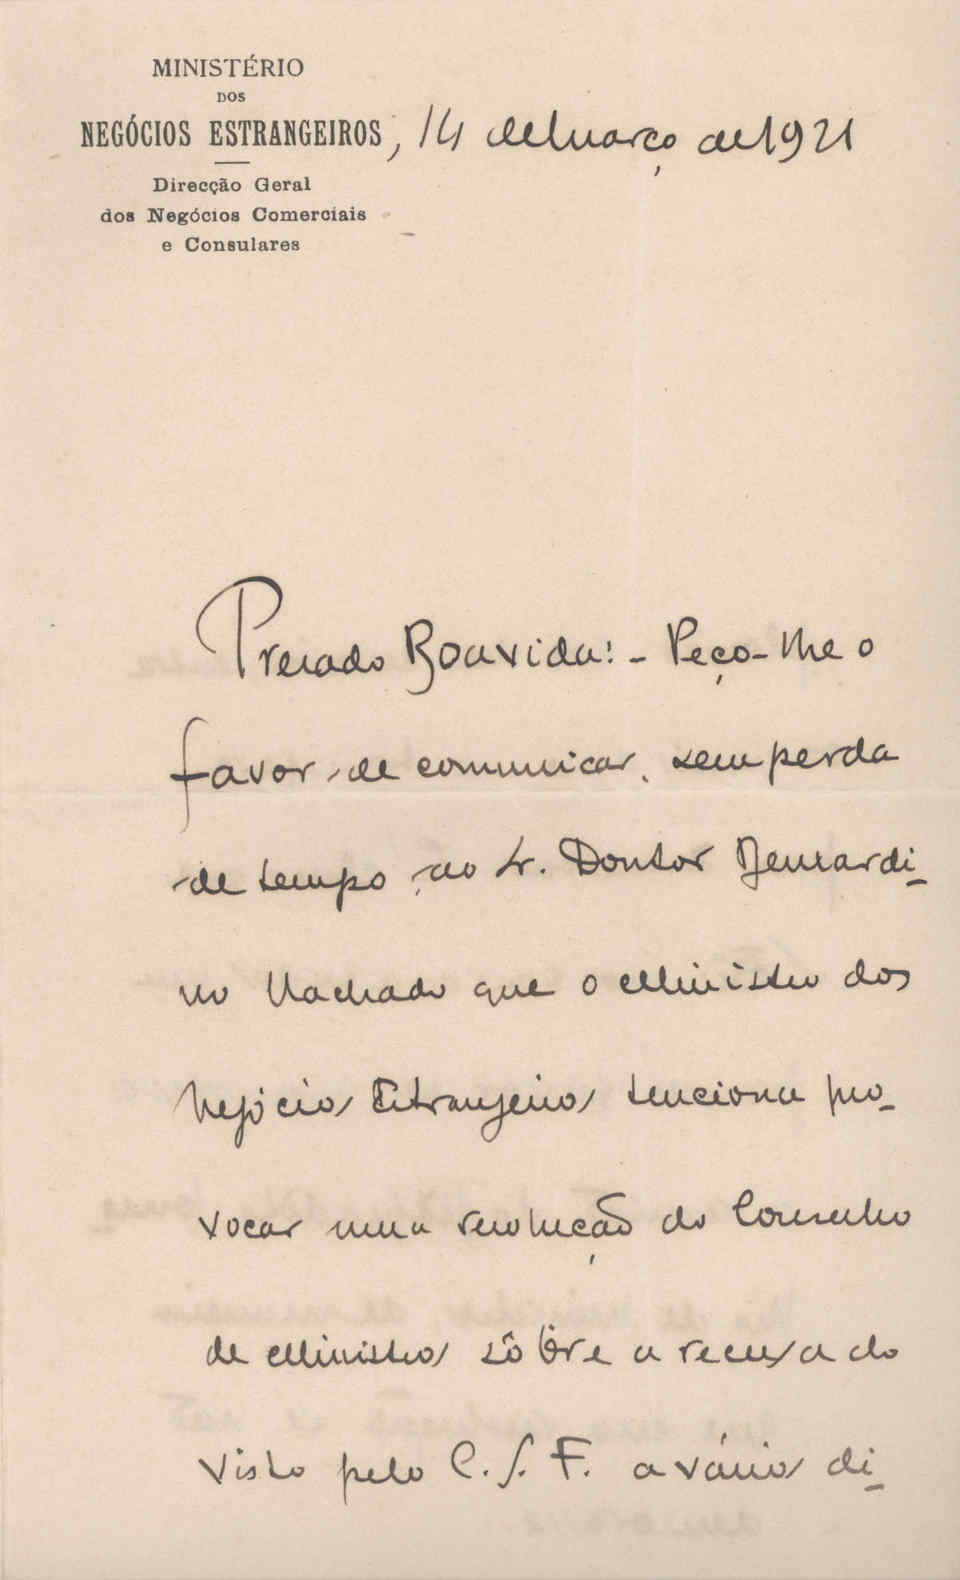 MINISTÉRIO
DOS
NEGÓCIOS ESTRANGEIROS, 14 de Março de 1921
Direcção Geral
dos Negócios Comerciais
e Consulares
Prezado Boavida: - Peço-lhe o
favor de comunicar, sem perda
de tempo, ao Sr. Doutor Bernardi-
no Machado que o Ministro dos
Negócios Estrangeiros tenciona pro-
vocar uma resolução do Conselho
de Ministros sôbre a recusa do
visto pelo C. S. F. a vários di-